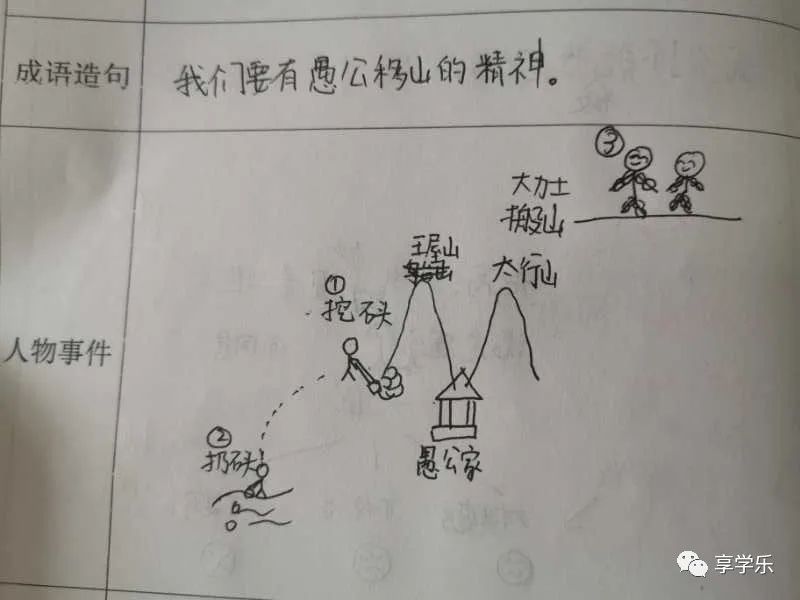 成语造句
我们要有愚公移山的精神。
③
大力士
搬山
王屋山
太行山
①
挖石头
人物事件
②
扔石头
愚公家
享学乐